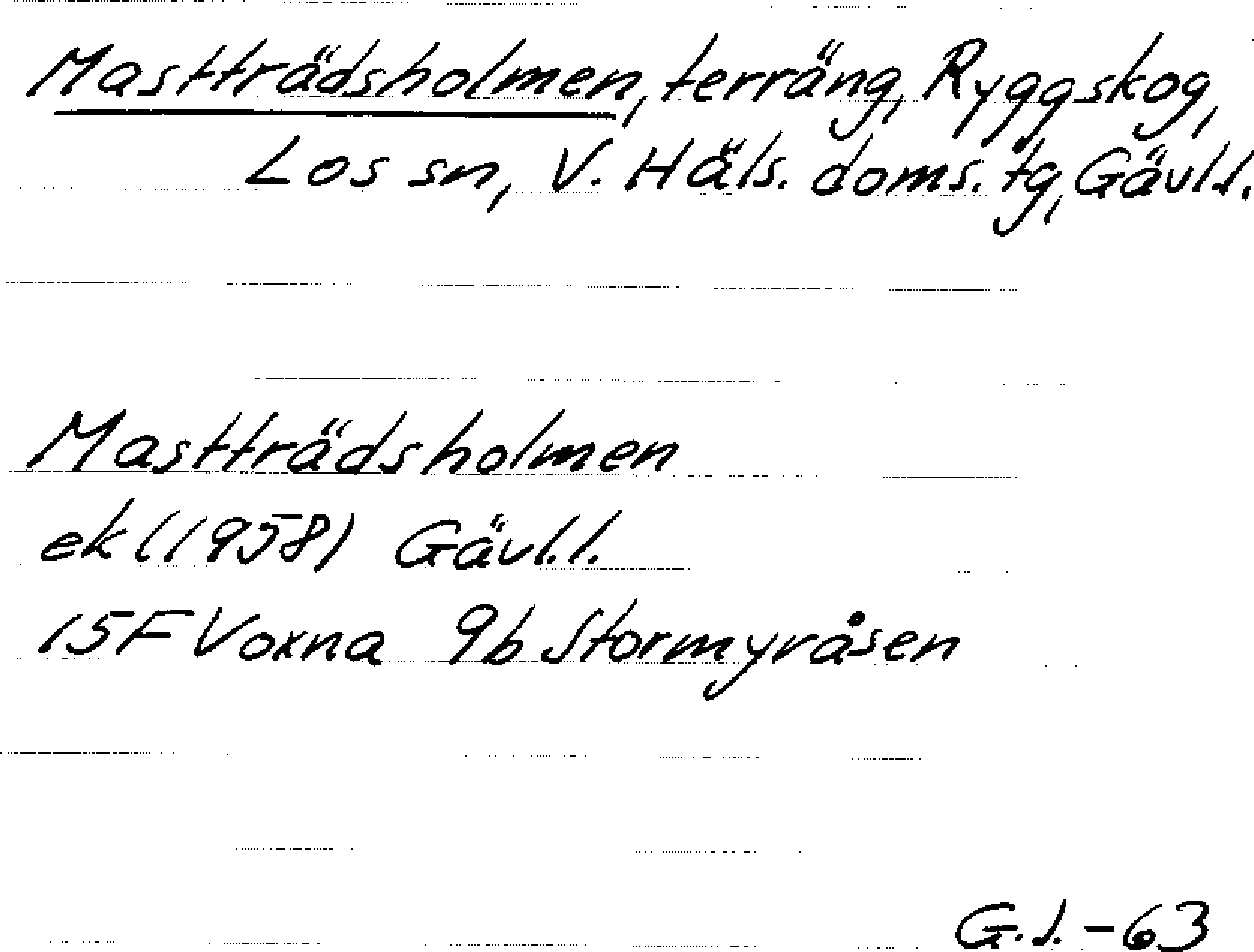 Mastträdsholmen, terräng, Ryggskog,
Los sn, V. Häls. doms. tg, Gävl.l.
Mastträdsholmen
ek (1958) Gävl.l.
15F Voxna 9b Stormyråsen
G.J. -63